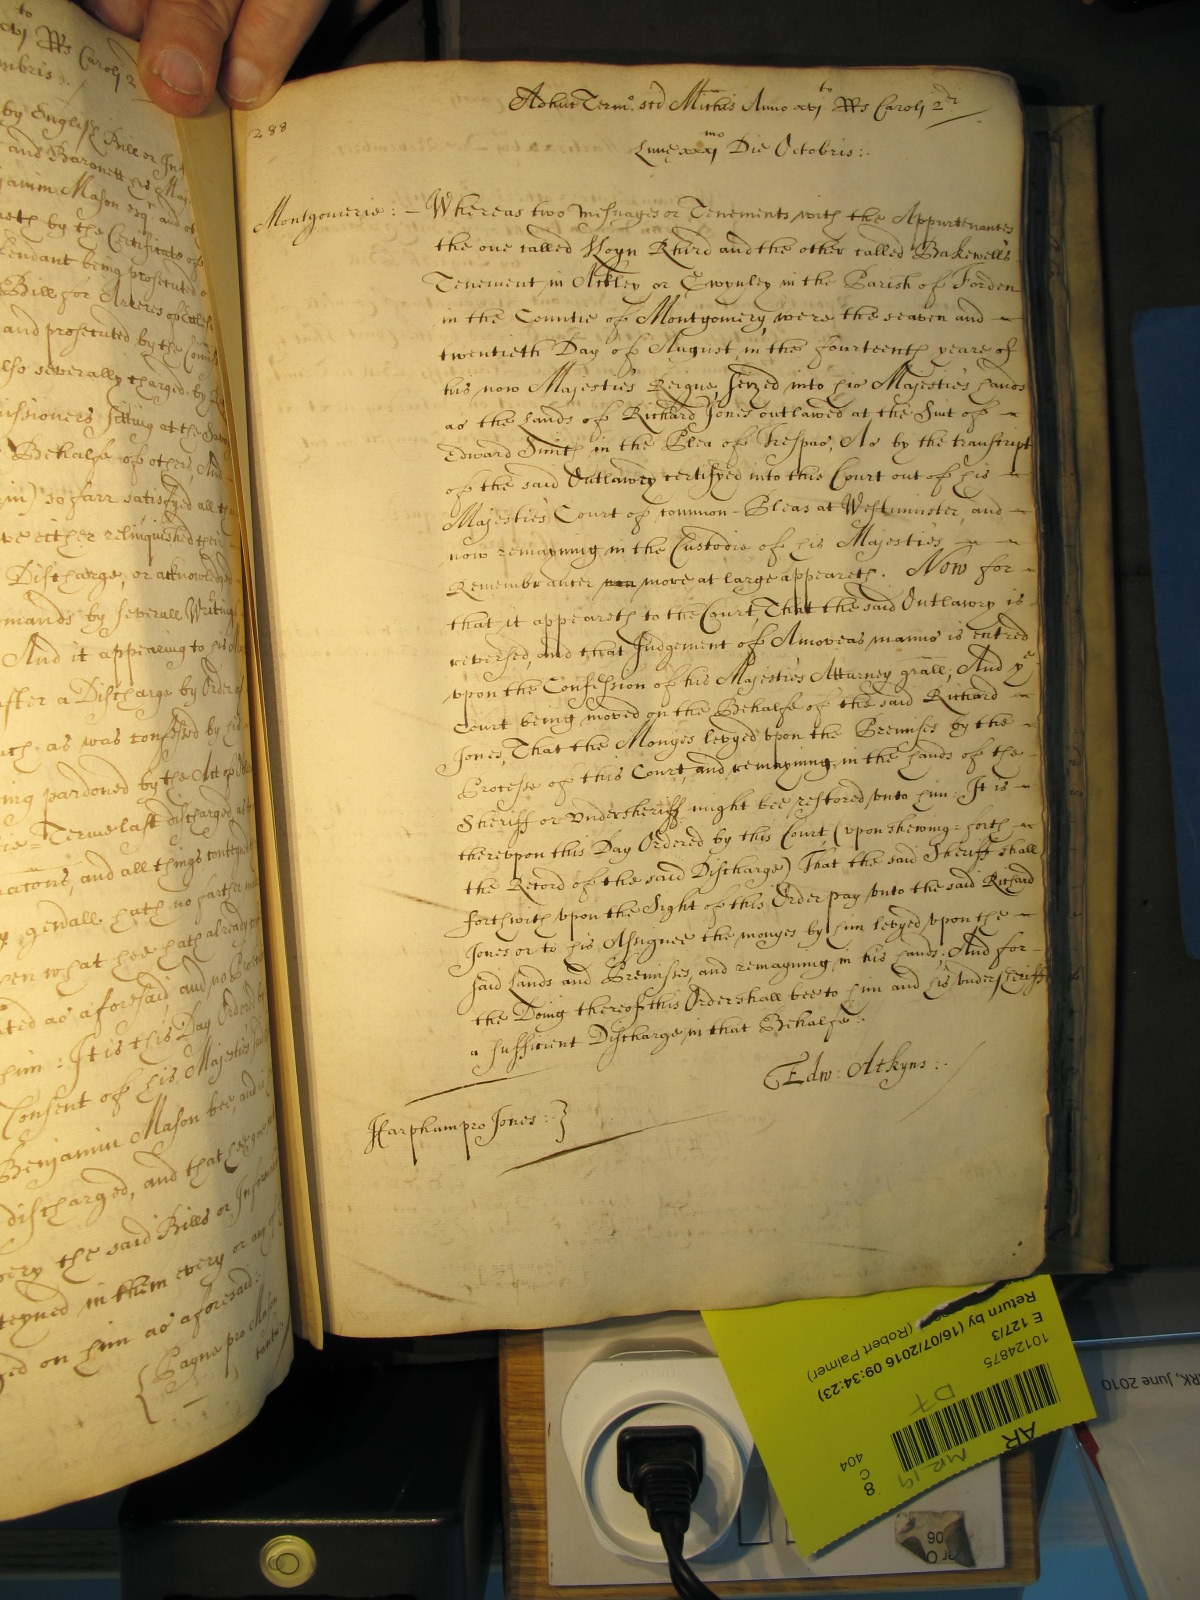 to
xvj RRs Caroli 2
mbris:
by English Bill or Inf
and Baronett is Maj
jamin Mason Esqr and ot
ath by the Certificate of
fendant being prosecuted
Bill for Arreres of
and prosecuted by the Comiss
lso severally charged by
issioners sitting at the
Behalfe of other, And
in) so farr satisfyed all
ve either relinquished their
Discharge, or acknowledged
mands by severall Writing
And it appearing to his
after a Discharge by Order
ath, as was confessed by his
ing pardoned by the Act of
Terme last discharged
and all things
gerall hath no farther
en what hee hath already
ted as aforesaid and no
him: It is this Day Ordered by
Consent of his Majesties said
Benjamin Mason bee, and
discharged, and that hee
very the said Bills or Informa
teyned in them every or any of
ed on him as aforesaid:
Payne pro Mason
288
Adhuc Termo. scd Michis Anno xvjto RRs Caroli 2di
Lune xxxjmo Die Octobris:
Montgomerie: - Whereas two Messuages or Tenements with the Appurtenantes
the one called Hoyn Rhird and the other called Bakewells
Tenement in Ackley or in the Parish of Forden
in the Countie of Montgomery, were the seaven and
twentieth Day of August, in the fourteenth yeare of
his now Majesties Reigne, seized into his Majesties hands
as the Lands of Richard Jones outlawed at the Suit of
Edward Smith in the Plea of Trespas, As by the transcript
of the said Outlawry certifyed into this Court out of his
Majesties Court of common-Pleas at Westminster, and
now remayning in the Custodie of his Majesties
Remembrancer more at large appeareth. Now for
that it appeareth to the Court, That the said Outlawry is
reversed, and that Judgement of Amoveas manus is entred
upon the Confession of his Majesties Atturney grall; And ye
Court being moved on the Behalfe of the said Richard
Jones, That the Monyes levyed upon the Premises by the
Processe of this Court, and remayning in the hands of the
Sheriff or Undersheriff might bee restored unto him: It is
thereupon this Day Ordered by this Court (upon shewing-forth
the Record of the said Discharge) That the said Sheriff shall
forthwith upon the Sight of this Order pay unto the said Richard
Jones or to his Assignee the monyes by him levyed upon the
said Lands and Premisses, and remayning in his hands; And for
the Doing thereof this Order shall bee to him and his Undersheriff
a sufficient Discharge in that Behalfe:
Edw: Atkyns:
Harpham pro Jones:
AR
8
C
404
MR 19
D7
10124875
E 127/3
Return by (16/07/2016 09:34:23)
(Robert Palmer)
RK, June 2010
er O
06